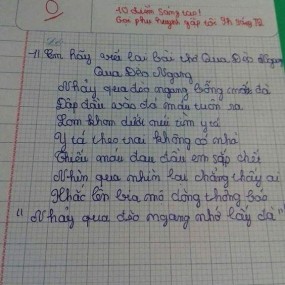 0
10 điểm sáng tạo!
Gọi phụ huynh gặp tôi
-11 Em hãy viết lại bài thơ Qua Đèo Ngang
Qua Đèo Ngang
Nhảy qua đèo ngang bỗng mất đà
Đập đầu vào đá máu tuôn ra
Lom khom dưới núi tìm y tá
Y tá theo trai không có nhà
Thiếu máu đau đầu em sắp chết
Nhìn qua nhìn lại chẳng thấy ai
Khắc lên bia mộ dòng thông báo
"Nhảy qua đèo ngang nhớ lấy đà"